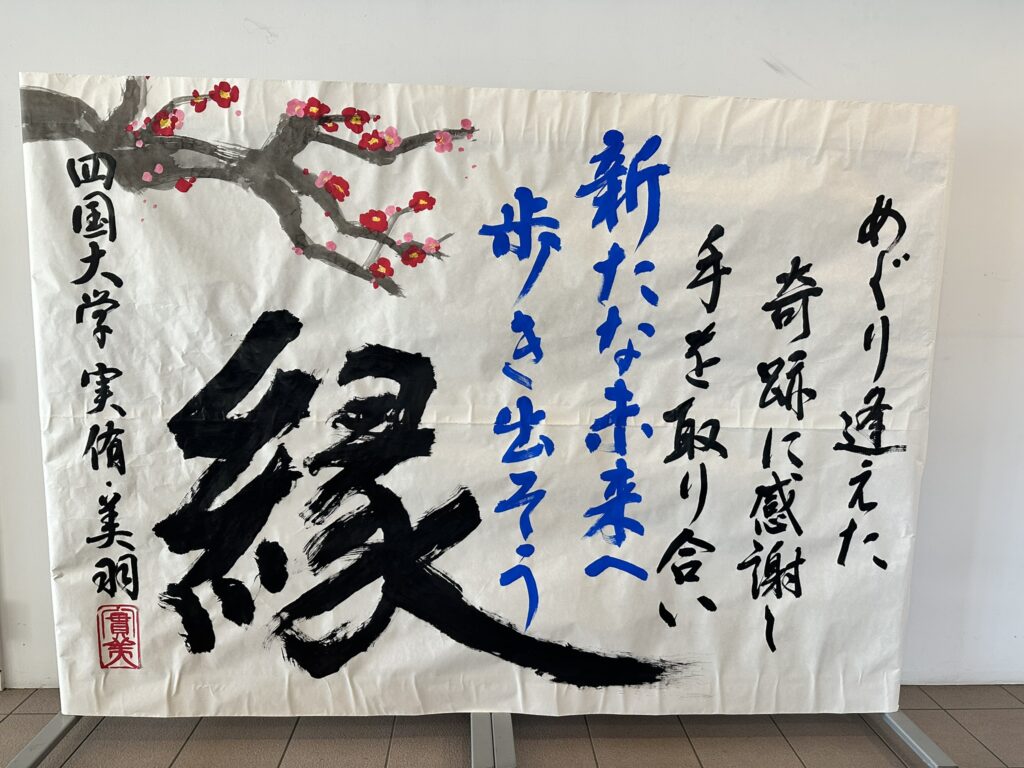 めぐり逢えた
奇跡に感謝し
手を取り合い
新たな未来へ
歩き出そう
縁
四国大学 実侑・美羽
實美